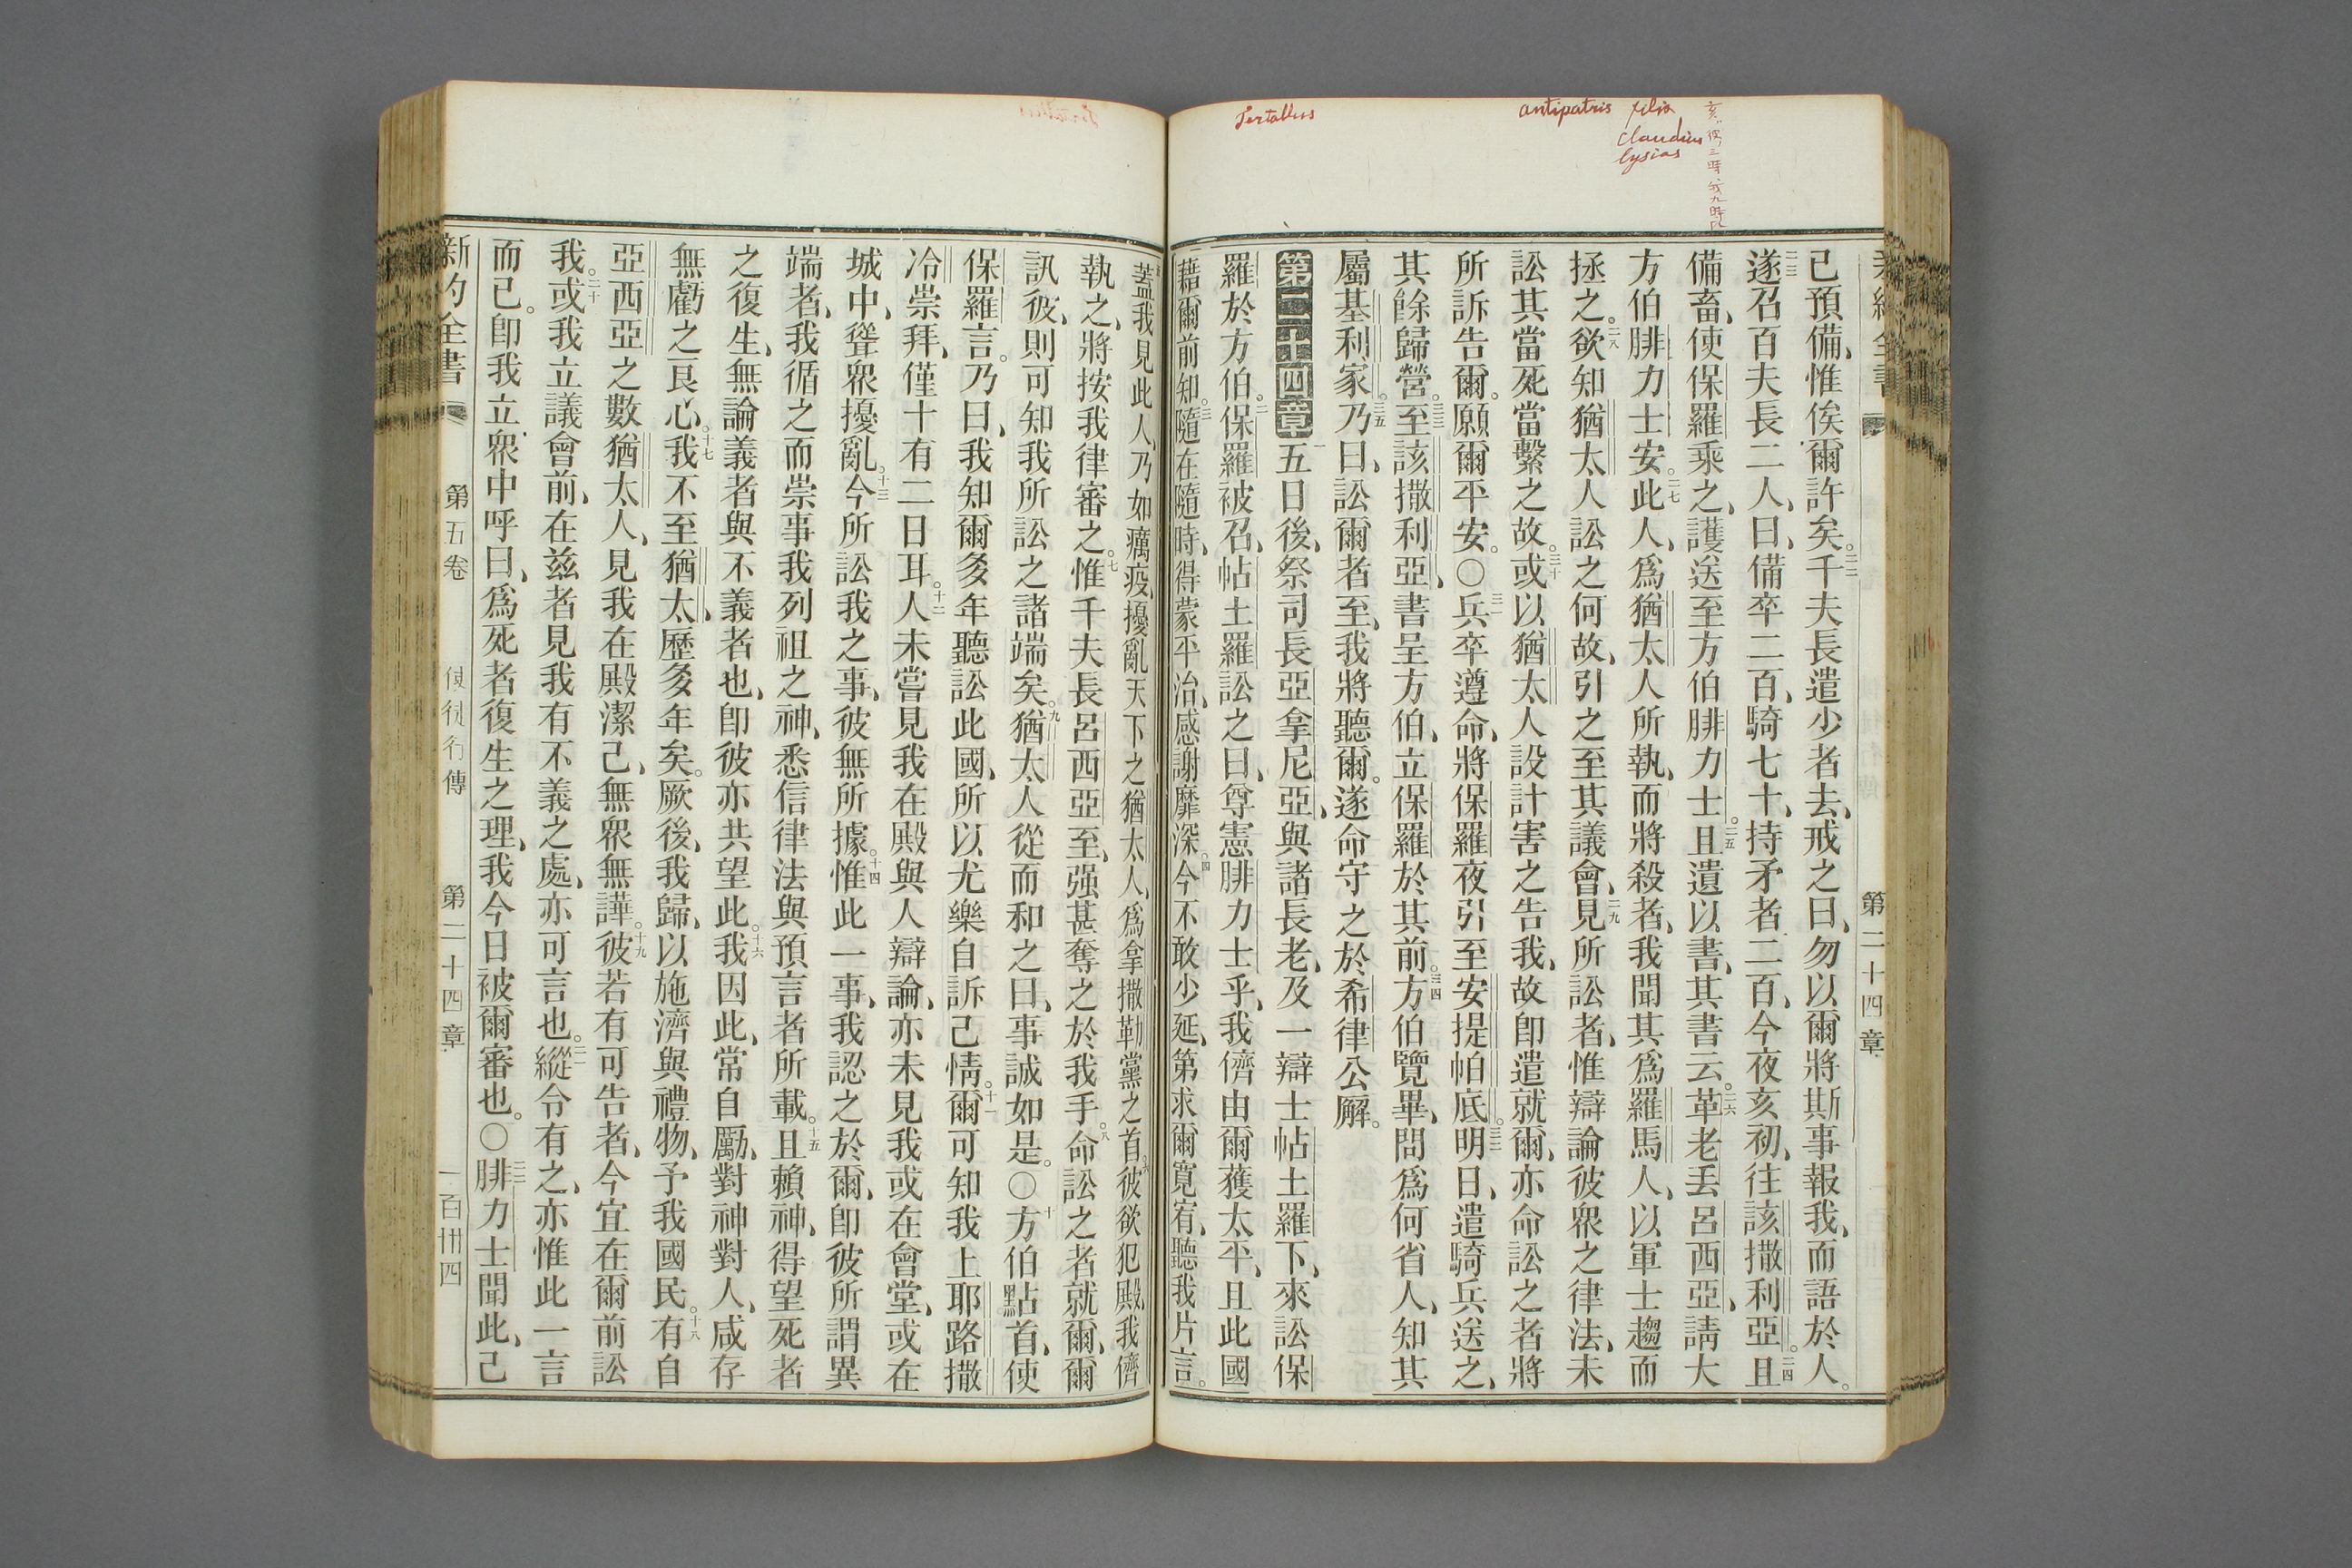 Tertallus
antipatris
felix
Claudius
lysias
第二十四章
己預備、惟俟爾許矣。二二千夫長遣少者去、戒之曰、勿以爾將斯事報我、而語於人。
二三遂召百夫長二人、曰、備卒二百、騎七十、持矛者二百、今夜亥初、往該撒利亞。二四且
備畜、使保羅乘之、護送至方伯腓力士。二五且遺以書、其書云。二六革老丟呂西亞、請大
方伯腓力士安。二七此人、爲猶太人所執、而將殺者、我聞其爲羅馬人、以軍士趨而
拯之。二八欲知猶太人訟之何故、引之至其議會、二九見所訟者、惟辯論彼衆之律法、未
訟其當死當繫之故。三十或以猶太人設計害之告我、故卽遣就爾、亦命訟之者將
所訴告爾。願爾平安。〇三一兵卒遵命、將保羅夜引至安提帕底。三二明日、遣騎兵送之、
其餘歸營。三三至該撒利亞、書呈方伯、立保羅於其前。三四方伯覽畢、問爲何省人、知其
屬基利家。三五乃曰、訟爾者至、我將聽爾。遂命守之於希律公廨。
第二十四章 一五日後、祭司長亞拿尼亞、與諸長老、及一辯士帖土羅下、來訟保
羅於方伯。二保羅被召、帖土羅訟之曰、尊憲腓力士乎、我儕由爾獲太平、且此國
藉爾前知。三隨在隨時、得蒙平治、感謝靡深。四今不敢少延、第求爾寬宥、聽我片言。
蓋我見此人、乃如癘疫、擾亂天下之猶太人、爲拿撒勒黨之首。六彼欲犯殿、我儕
執之、將按我律審之。七惟千夫長呂西亞至、强甚奪之於我手。八命訟之者就爾、爾
訊彼、則可知我所訟之諸端矣。九猶太人從而和之曰、事誠如是。〇十方伯點首、使
保羅言。乃曰、我知爾多年聽訟此國、所以尤樂自訴己情。十一爾可知我上耶路撒
冷崇拜、僅十有二日耳。十二人未嘗見我在殿與人辯論、亦未見我或在會堂、或在
城中、聳衆擾亂。十三今所訟我之事、彼無所據。十四惟此一事、我認之於爾、卽彼所謂異
端者、我循之而崇事我列祖之神、悉信律法與預言者所載。十五且賴神、得望死者
之復生、無論義者與不義者也、卽彼亦共望此。十六我因此、常自勵、對神對人、咸存
無虧之良心。十七我不至猶太、歷多年矣。厥後、我歸、以施濟與禮物、予我國民。十八有自
亞西亞之數猶太人、見我在殿潔己、無衆無譁。十九彼若有可告者、今宜在爾前訟
我。二十或我立議會前、在兹者見我有不義之處、亦可言也。二一縱令有之、亦惟此一言
而已。卽我立衆中呼曰、爲死者復生之理、我今日被爾審也。〇二二腓力士聞此、己
新約全書 第五卷 使徒行傳 第二十四章 一百卅四